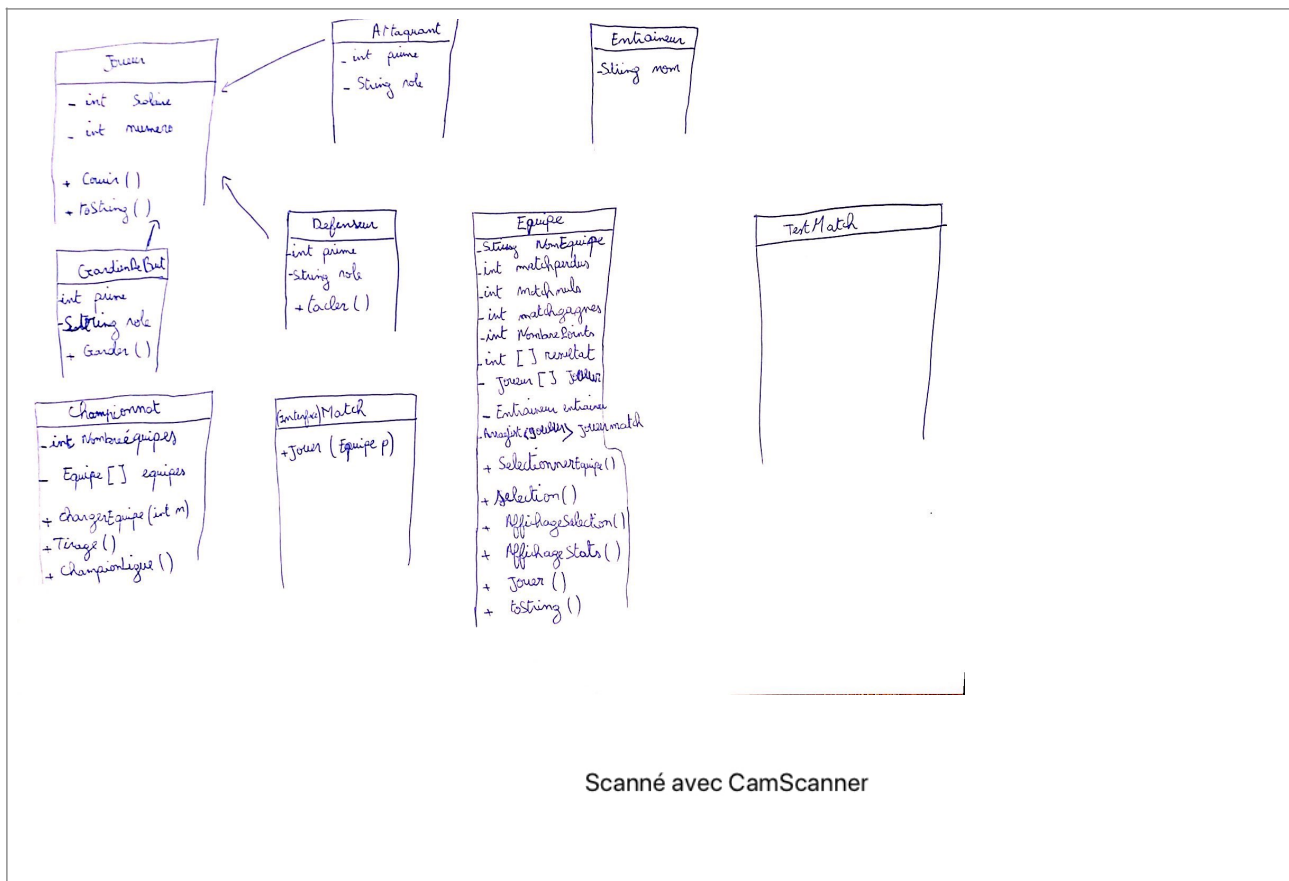 Joueur
- int Salaire
- int numero
+ Courir ()
+ toString ()
Attaquant
- int prime
- String role
Entraineur
-String nom
GardienDeBut
-int prime
-String role
+ Garder ()
Defenseur
-int prime
-String role
+ tacler ()
Equipe
-String NomEquipe
-int matchperdus
-int matchnuls
-int matchgagnes
-int NombrePoints
-int [ ] resultat
- Joueur [ ] Joueur
- Entraineur entraineur
-ArrayList <Joueur> Joueurmatch
+ SelectionnerEquipe ()
+ selection ()
+ AffichageSelection ()
+ AffichageStats ()
+ Jouer ()
+ toString ()
TestMatch
Championnat
-int Nombreéquipes
- Equipe [ ] equipes
+ chargerEquipe (int n)
+ Tirage ()
+ ChampionLigue ()
(Interface) Match
+Jouer (Equipe p)
Scanné avec CamScanner